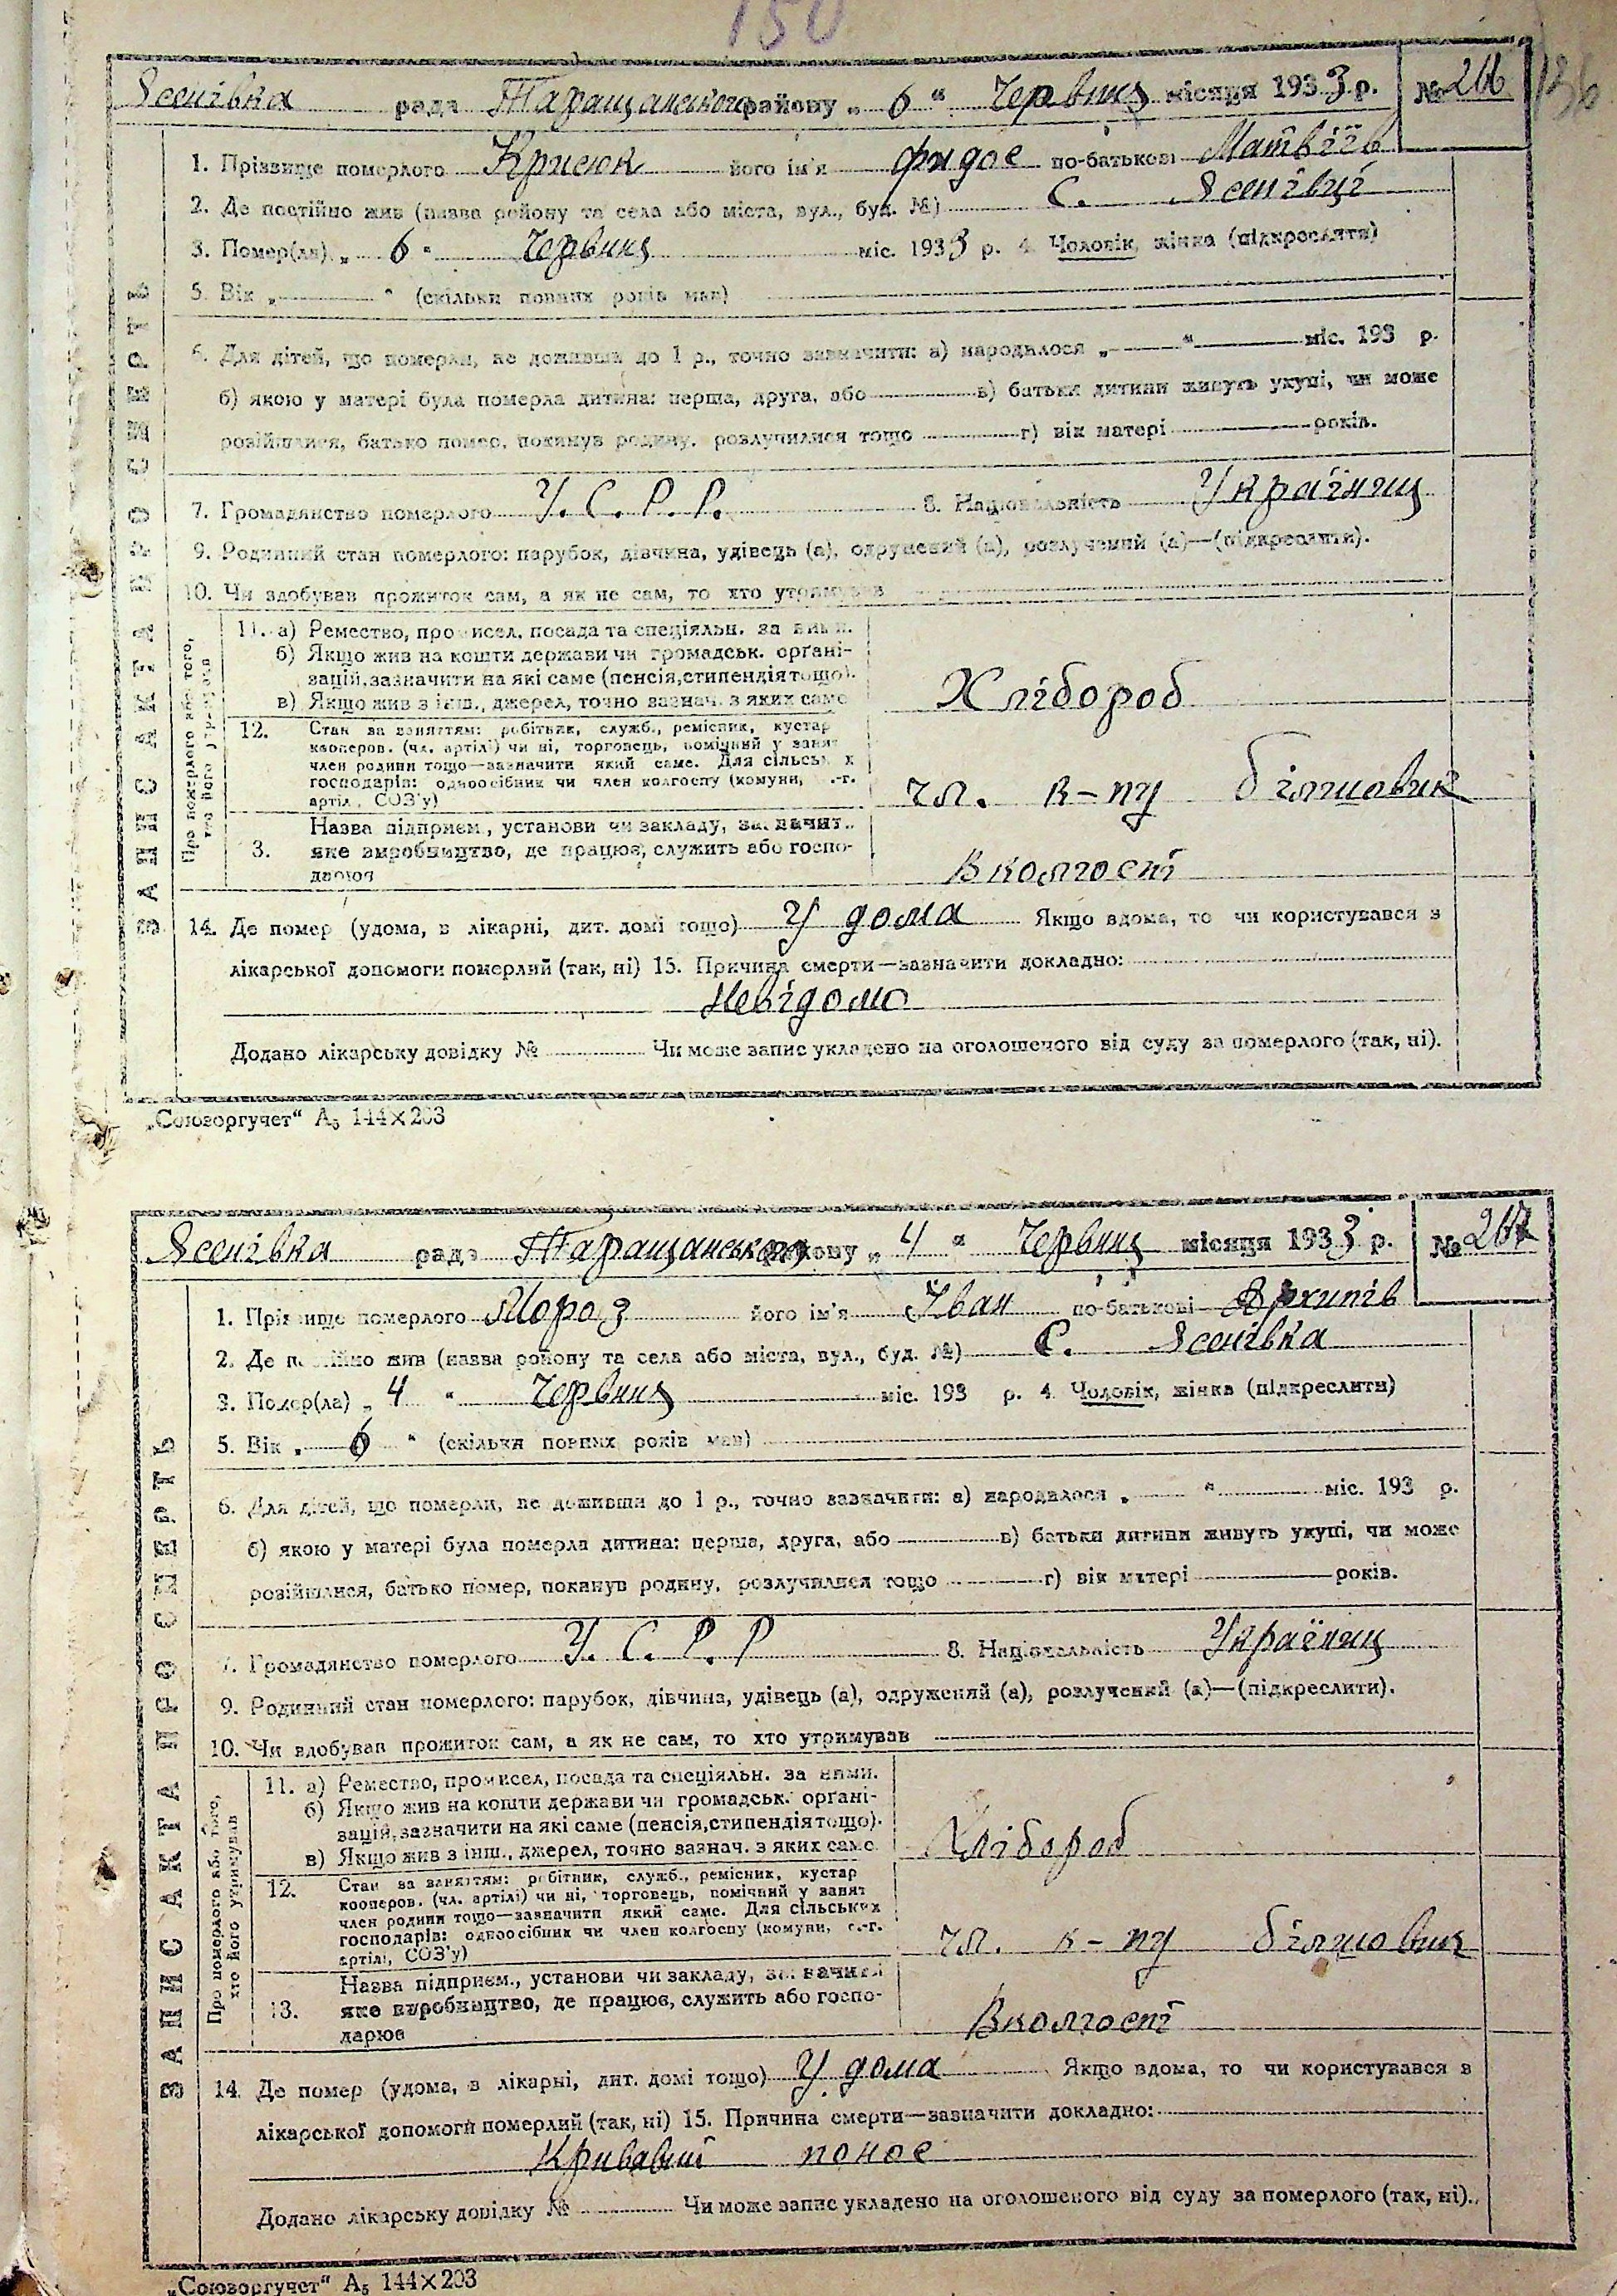 150
Ясенівка рада Таращанського району „ 6 " Червня місяця 1933 р. №
1. Прізвище померлого його ім'я Фидос по-батькові Матвіїв
2. Де постійно жив (назва району та села або міста, вул., буд. №) С. Ясенівці
3. Помер(ла) „ 6 " Червня міс. 1933 р. 4. Чоловік, жінка (підкреслити)
5. Вік „ " (скільки повних років мав)
6. Для дітей, що померли, не доживши до 1 р., точно зазначити: а) народилося „ " міс. 193 р.
б) якою у матері була померла дитина: перша, друга, або в) батьки дитини живуть укупі, чи може
розійшлися, батько помер, покинув родину, розлучилися тощо г) вік матері років.
7. Громадянство померлого У. С. Р. Р. 8. Національність Українць
9. Родинний стан померлого: парубок, дівчина, удівець (а), одружений (а), розлучений (а)—(підкреслити).
10. Чи здобував прожиток сам, а як не сам, то хто утримував
ЗАПИС АКТА ПРО СМЕРТЬ
Про померлого або того, хто його утримував
11. а) Ремество, промисел, посада та спеціяльн. за ними.
б) Якщо жив на кошти держави чи громадськ. орґані-
зацій, зазначити на які саме (пенсія, стипендія тощо).
в) Якщо жив з інш., джерел, точно зазнач. з яких саме
Хлібороб
12. Стан за заняттям: робітник, служб., ремісник, кустар
кооперов. (чл. артілі) чи ні, торговець, помічний у занят
член родини тощо—зазначити який саме. Для сільськ х
господарів: одноосібник чи член колгоспу (комуни, с.-г.
артіл, СОЗ'у)
чл. к-пу більшовик
3. Назва підприєм., установи чи закладу, зазначит.,
яке виробництво, де працює, служить або госпо-
дарює
В колгоспі
14. Де помер (удома, в лікарні, дит. домі тощо) У дома Якщо вдома, то чи користувався з
лікарської допомоги померлий (так, ні) 15. Причина смерти—зазначити докладно:
Невідомо
Додано лікарську довідку № Чи може запис укладено на оголошеного від суду за померлого (так, ні).
„Союзоргучет" А5 144×203
Ясенівка рада Таращанського району „ 4 " Червня місяця 1933 р. №
1. Прізвище померлого Мороз його ім'я Іван по-батькові Архипів
2. Де постійно жив (назва району та села або міста, вул., буд. №) С. Ясенівка
3. Помер(ла) „ 4 " Червня міс. 193 р. 4. Чоловік, жінка (підкреслити)
5. Вік „ 6 " (скільки повних років мав)
6. Для дітей, що померли, не доживши до 1 р., точно зазначити: а) народилося „ " міс. 193 р.
б) якою у матері була померла дитина: перша, друга, або в) батьки дитини живуть укупі, чи може
розійшлися, батько помер, покинув родину, розлучилися тощо г) вік матері років.
7. Громадянство померлого У. С. Р. Р 8. Національність Українць
9. Родинний стан померлого: парубок, дівчина, удівець (а), одружений (а), розлучений (а)—(підкреслити).
10. Чи здобував прожиток сам, а як не сам, то хто утримував
ЗАПИС АКТА ПРО СМЕРТЬ
Про померлого або того, хто його утримував
11. а) Ремество, промисел, посада та спеціяльн. за ними.
б) Якщо жив на кошти держави чи громадськ. орґані-
зацій, зазначити на які саме (пенсія, стипендія тощо).
в) Якщо жив з інш., джерел, точно зазнач. з яких саме
Хлібороб
12. Стан за заняттям: робітник, служб., ремісник, кустар
кооперов. (чл. артілі) чи ні, торговець, помічний у занят
член родини тощо—зазначити який саме. Для сільських
господарів: одноосібник чи член колгоспу (комуни, с.-г.
артілі, СОЗ'у)
чл. к-пу більшовик
13. Назва підприєм., установи чи закладу, зазначити
яке виробництво, де працює, служить або госпо-
дарює
В колгоспі
14. Де помер (удома, в лікарні, дит. домі тощо) У дома Якщо вдома, то чи користувався в
лікарської допомоги померлий (так, ні) 15. Причина смерти—зазначити докладно:
Кривавий понос
Додано лікарську довідку № Чи може запис укладено на оголошеного від суду за померлого (так, ні).
„Союзоргучет" А5 144×203